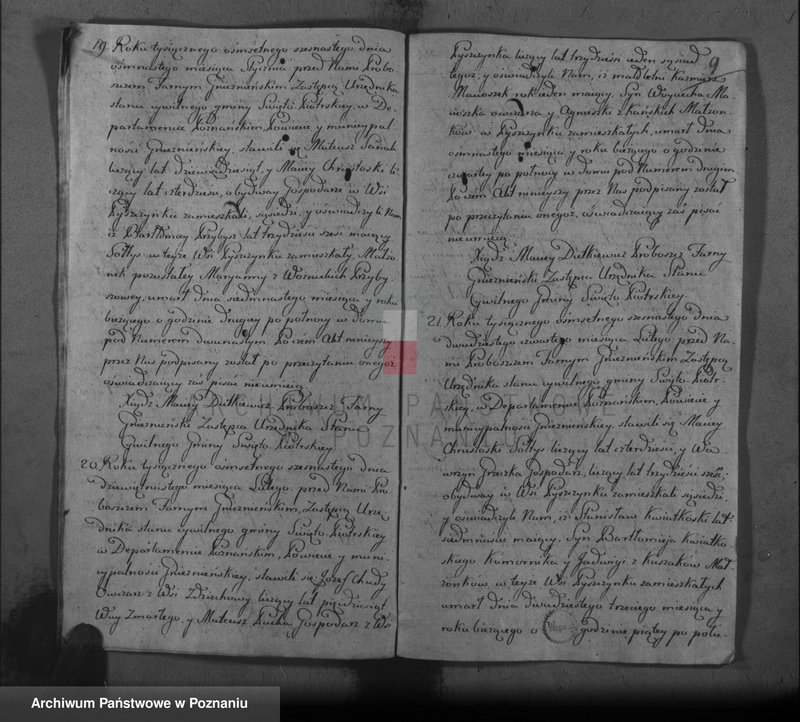 19. Roku tysiącznego osmsetnego szesnastego dnia
osmnastego miesiąca Stycznia, przed Nami Probo-
szczem Farnym Gnieznienskim Zastępcą Urzędnika
stanu cywilnego gminy Swięto Piotrskiey, w De-
partamencie Poznańskim, Powiecie y municypal-
ności Gnieznienskiey, stawili się Mateusz
liczący lat dziewiędziesiąt, y Maciey Chrostoski li-
czący lat czterdzieści, obydway Gospodarze w Wsi
Pyszczynku zamieszkali, sąsiedzi, y oświadczyli Nam
iż Bartłomiey Przybysz lat trzydzieści sześć maiący
Sołtys w teyże Wsi Pyszczynku zamieszkały, Małżo-
nek pozostałey Maryanny z Przyby-
szowey, umarł dnia siedmnastego miesiąca y roku
bieżącego o godzinie drugiey po północy w domu
pod Numerem dwunastym. Poczem Akt ninieyszy
przez Nas podpisany został po przeczytaniu onegoż
oświadczaiący zaś pisać nieumieią.
Xiądz Maciey Dutkiewicz Proboszcz Farny
Gnieznienski Zastępca Urzędnika Stanu
Cywilnego Gminy Swięto Piotrskiey
20. Roku tysiącznego osmsetnego szesnastego dnia
dziewiętnastego miesiąca Lutego: przed Nami Pro-
boszczem Farnym Gnieznienskim, Zastępcą Urzę-
dnika stanu cywilnego gminy Swięto Piotrskiey
w Departamencie Poznańskim, Powiecie y muni-
cypalności Gnieznienskiey, stawili się Jozef Chudy
Owczarz z Wsi Dziechowy liczący lat pięćdziesiąt
Wuy Zmarłego, y Mateusz Gospodarz z Wsi
9
Pyszczynka liczący lat trzydzieści ieden sąsiad
tegoż, y oświadczyli Nam, iż małoletni Kazmierz
Nawoszek rok ieden maiący, Syn Woyciecha Na-
woszka owczarza y Agnieszki z Kańskich Małżon-
ków w Pyszczynku zamieszkałych, umarł dnia
osmnastego miesiąca y roku bieżącego o godzinie
czwartey po północy w domu pod Numerem drugim.
Poczem Akt ninieyszy przez Nas podpisany został
po przeczytaniu onegoż, oświadczaiący zaś pisać
nieumieią.
Xiądz Maciey Dutkiewicz Proboszcz Farny
Gnieznienski Zastępca Urzędnika Stanu
Cywilnego Gminy Swięto Piotrskiey
21. Roku tysiącznego osmsetnego szesnastego dnia
dwudziestego czwartego miesiąca Lutego przed Na-
mi Proboszczem Farnym Gnieznienskim Zastępcą
Urzędnika stanu cywilnego gminy Swięto-Piotr-
skiey, w Departamencie Poznańskim, Powiecie y
municypalności Gnieznienskiey, stawili się Maciey
Chrostoski Sołtys liczący lat czterdzieści, y Wa-
wrzyn Gospodarz, liczący lat trzydzieści sześć,
obydway w Wsi Pyszczynku zamieszkali sąsiedzi,
y oświadczyli Nam, iż Stanisław Kwiatkoski lat
siedmnascie maiący, Syn Bartłomieja Kwiatko-
skiego Komornika y Jadwigi z Kuszaków Mał-
żonków w teyże Wsi Pyszczynku zamieszkałych
umarł dnia dwudziestego trzeciego miesiąca y
roku bieżącego o godzinie piątey po połu-
ARCHIWUM PAŃSTWOWE
W POZNANIU
Archiwum Państwowe w Poznaniu